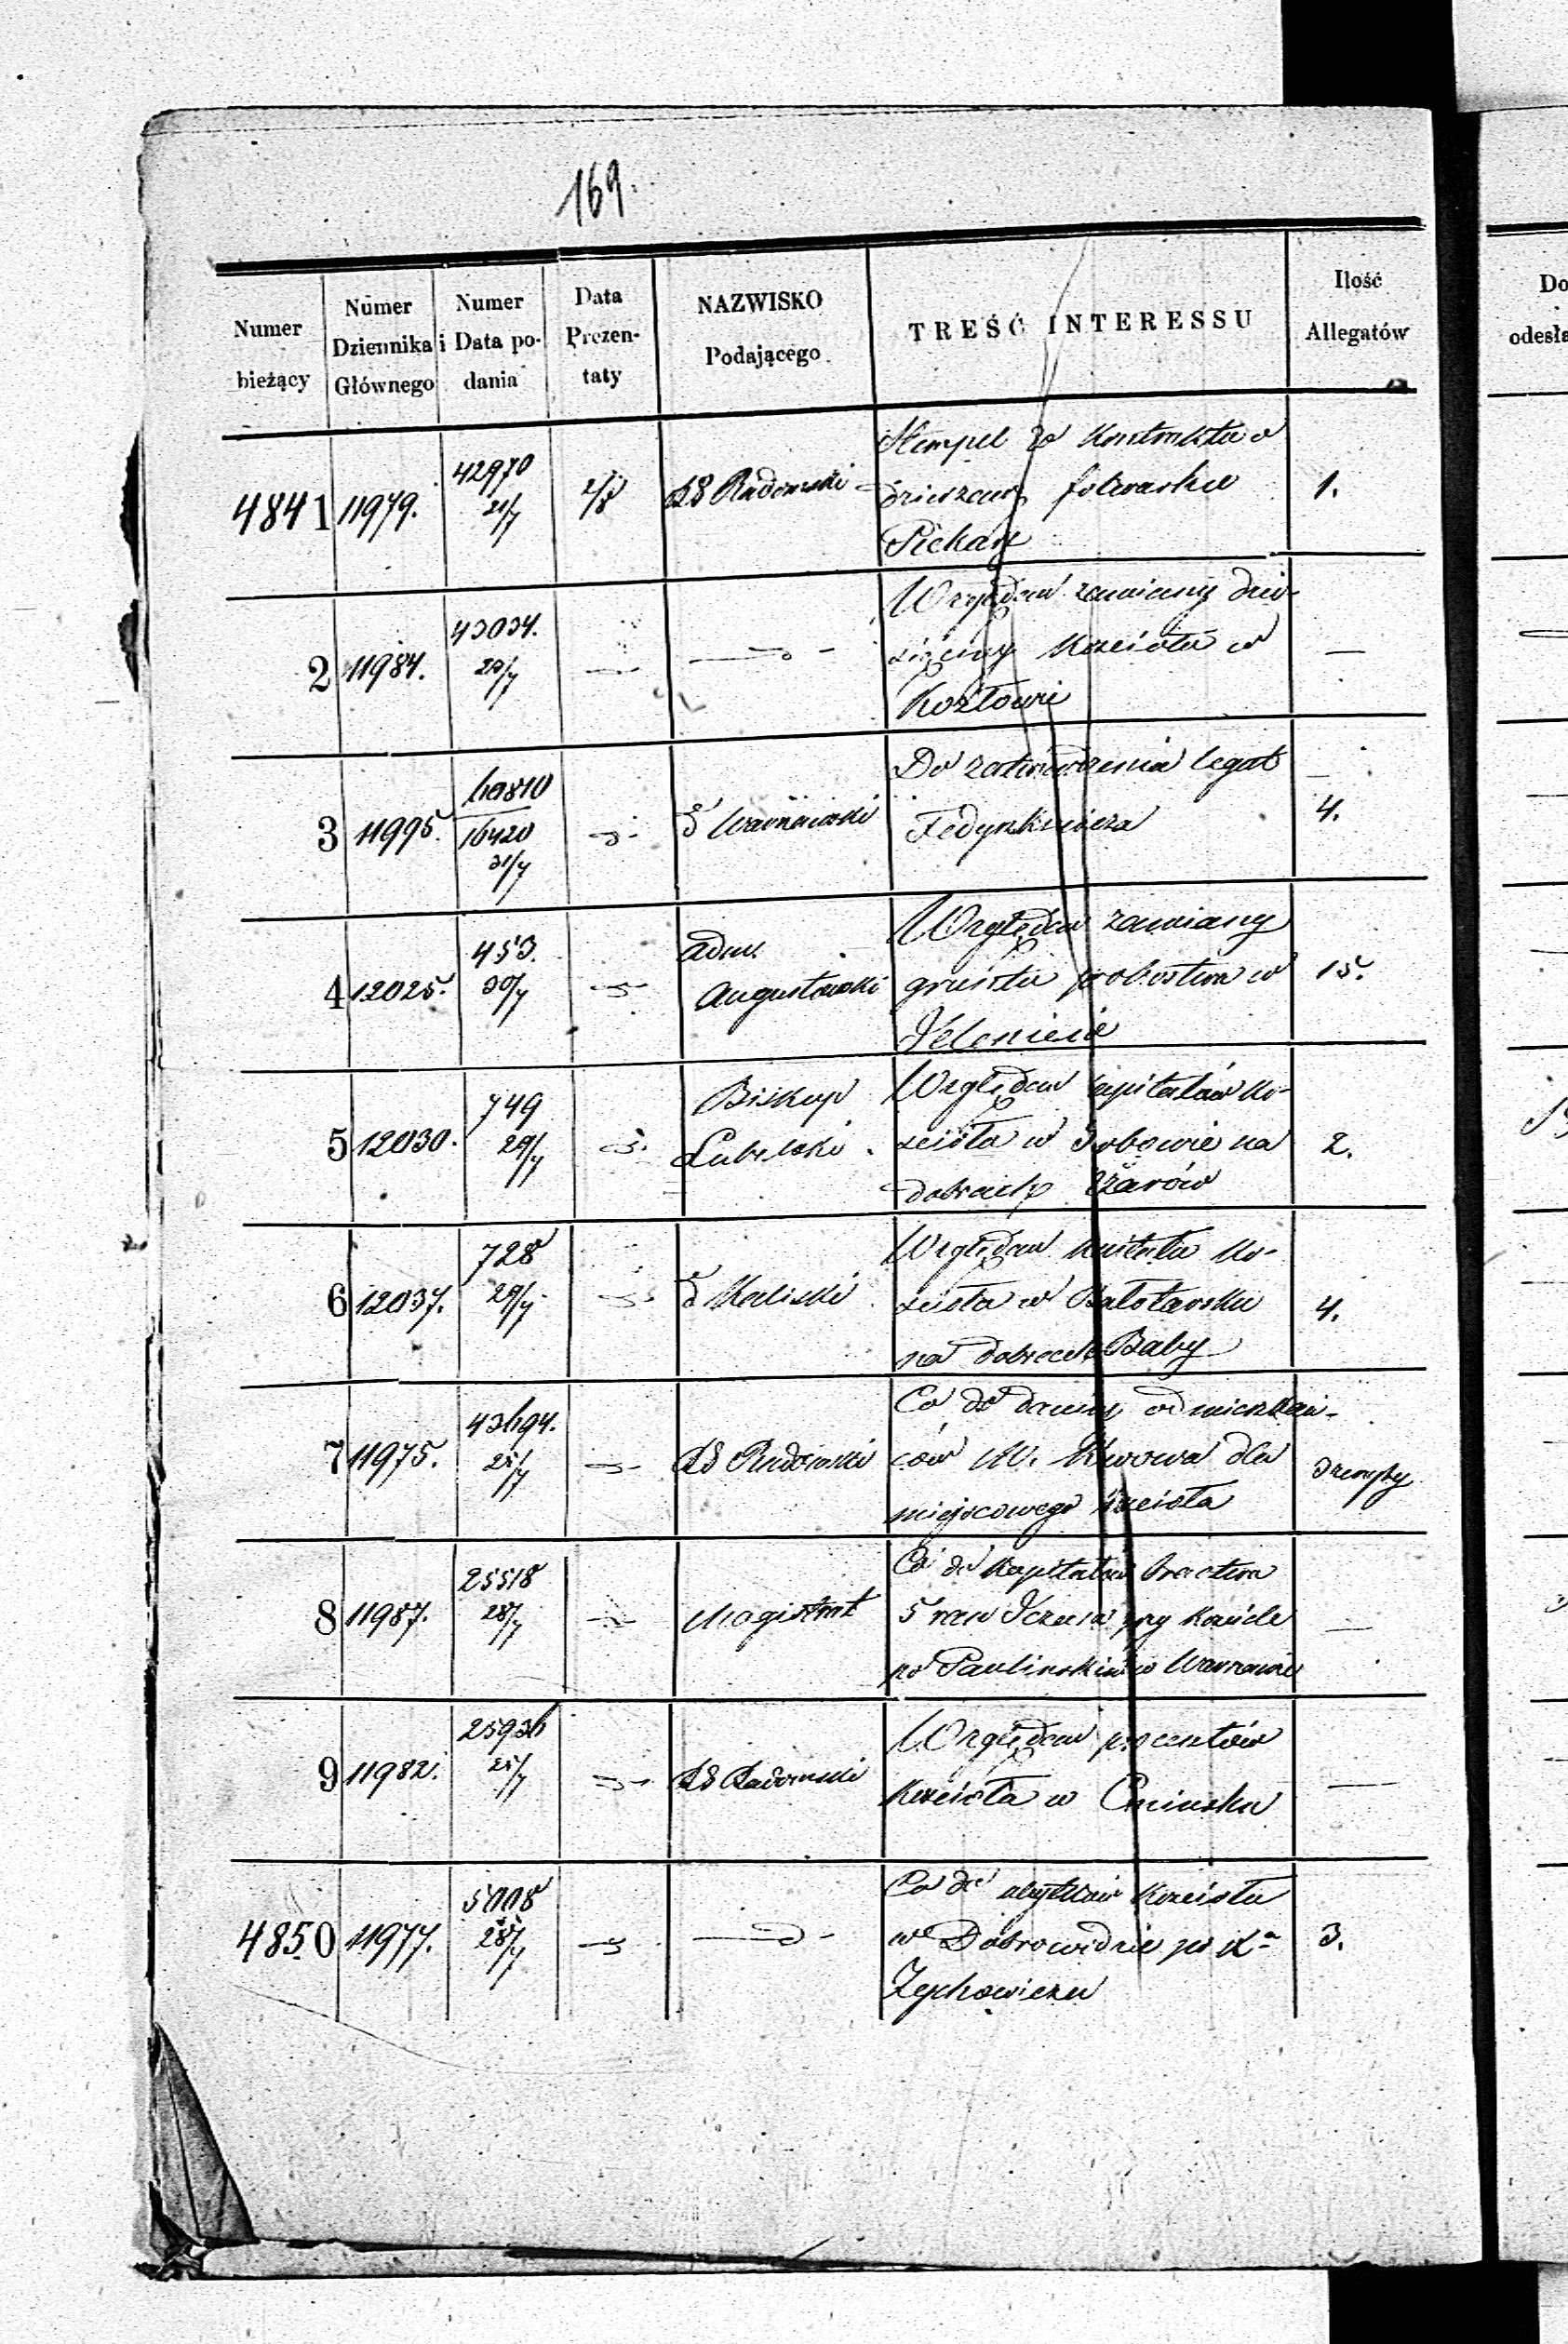 169.
Numer bieżący
Numer Dziennika Głównego
Numer i Data podania
Data Prezentaty
NAZWISKO Podającego
TREŚĆ INTERESSU
Ilość Allegatów
4841 11979. 42970 21/7 2/8 RG Radomski
Stempel do Kontraktu o
dzierżawę folwarku
Piekary
1.
2 11984. 43034. 29/7
Względem zamiany dzie-
sięciny Kościoła w
Kozłowie
—
3 11995. 16420 31/7 Warszawski
Do zatwierdzenia legat
Fedynkiewicza
4.
4 12025. 453. 30/7
Adm.
Augustowski
Względem zamiany
gruntu probostwa w
15.
5 12030. 749 29/7
Biskup
Lubelski
Względem kapitałów Ko-
ścioła w na
dobrach
2.
6 12037. 728 29/7 Kaliski
Względem Ko-
ścioła w
na dobrach Baby
4.
7 11975. 25/7 RG Radomski
Co do daniny od mieszkań-
ców M. dla
miejscowego Kościoła
3 zeszyty
8 11987. 25518 28/7 Magistrat
Co do Kapitałów bractwa
5 ran Jezusa przy Kościele
po Paulińskim w Warszawie
—
9 11982. 25/7 RG Radomski
Względem procentów
Kościoła w Cmińsku
—
4850 11977. 28/7
Co do Kościoła
w po
Zychowiczu
3.
Do
odesła